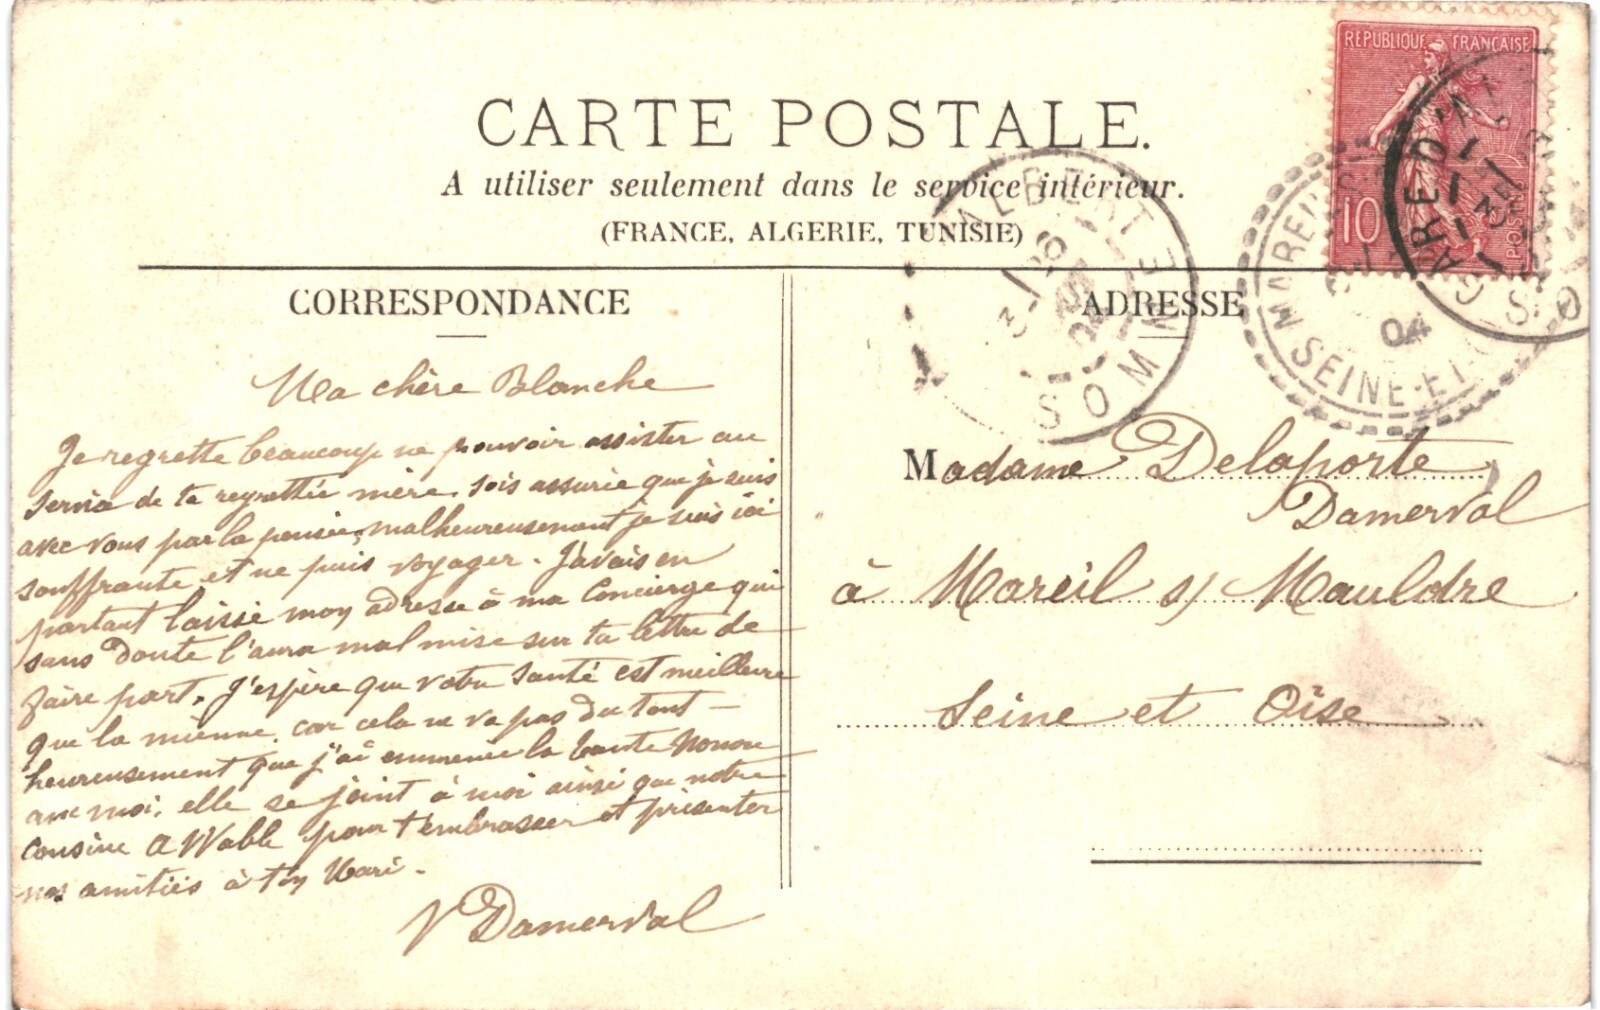 CARTE POSTALE.
A utiliser seulement dans le service intérieur.
(FRANCE, ALGERIE, TUNISIE)
RÉPUBLIQUE FRANÇAISE
10
POSTES
ALBERT
SOMME
04
MAREIL
SEINE-ET
04
CORRESPONDANCE
ADRESSE
Ma chère Blanche
Je regrette beaucoup ne pouvoir assister au
service de ta regrettée mère. sois assurée que je suis
avec vous par la pensée, malheureusement je suis ici
souffrante et ne puis voyager. J'avais en
partant laissé mon adresse à ma Concierge qui
sans doute l'aura mal mise sur ta lettre de
faire part. J'espère que votre santé est meilleure
que la mienne. car cela ne va pas du tout –
heureusement que j'ai emmenée la tante
avec moi. elle se joint à moi ainsi que notre
cousine pour t'embrasser et présenter
nos amitiés à ton Mari.
V Damerval
Madame Delaporte
Damerval
à Mareil s/ Mauldre
Seine et Oise